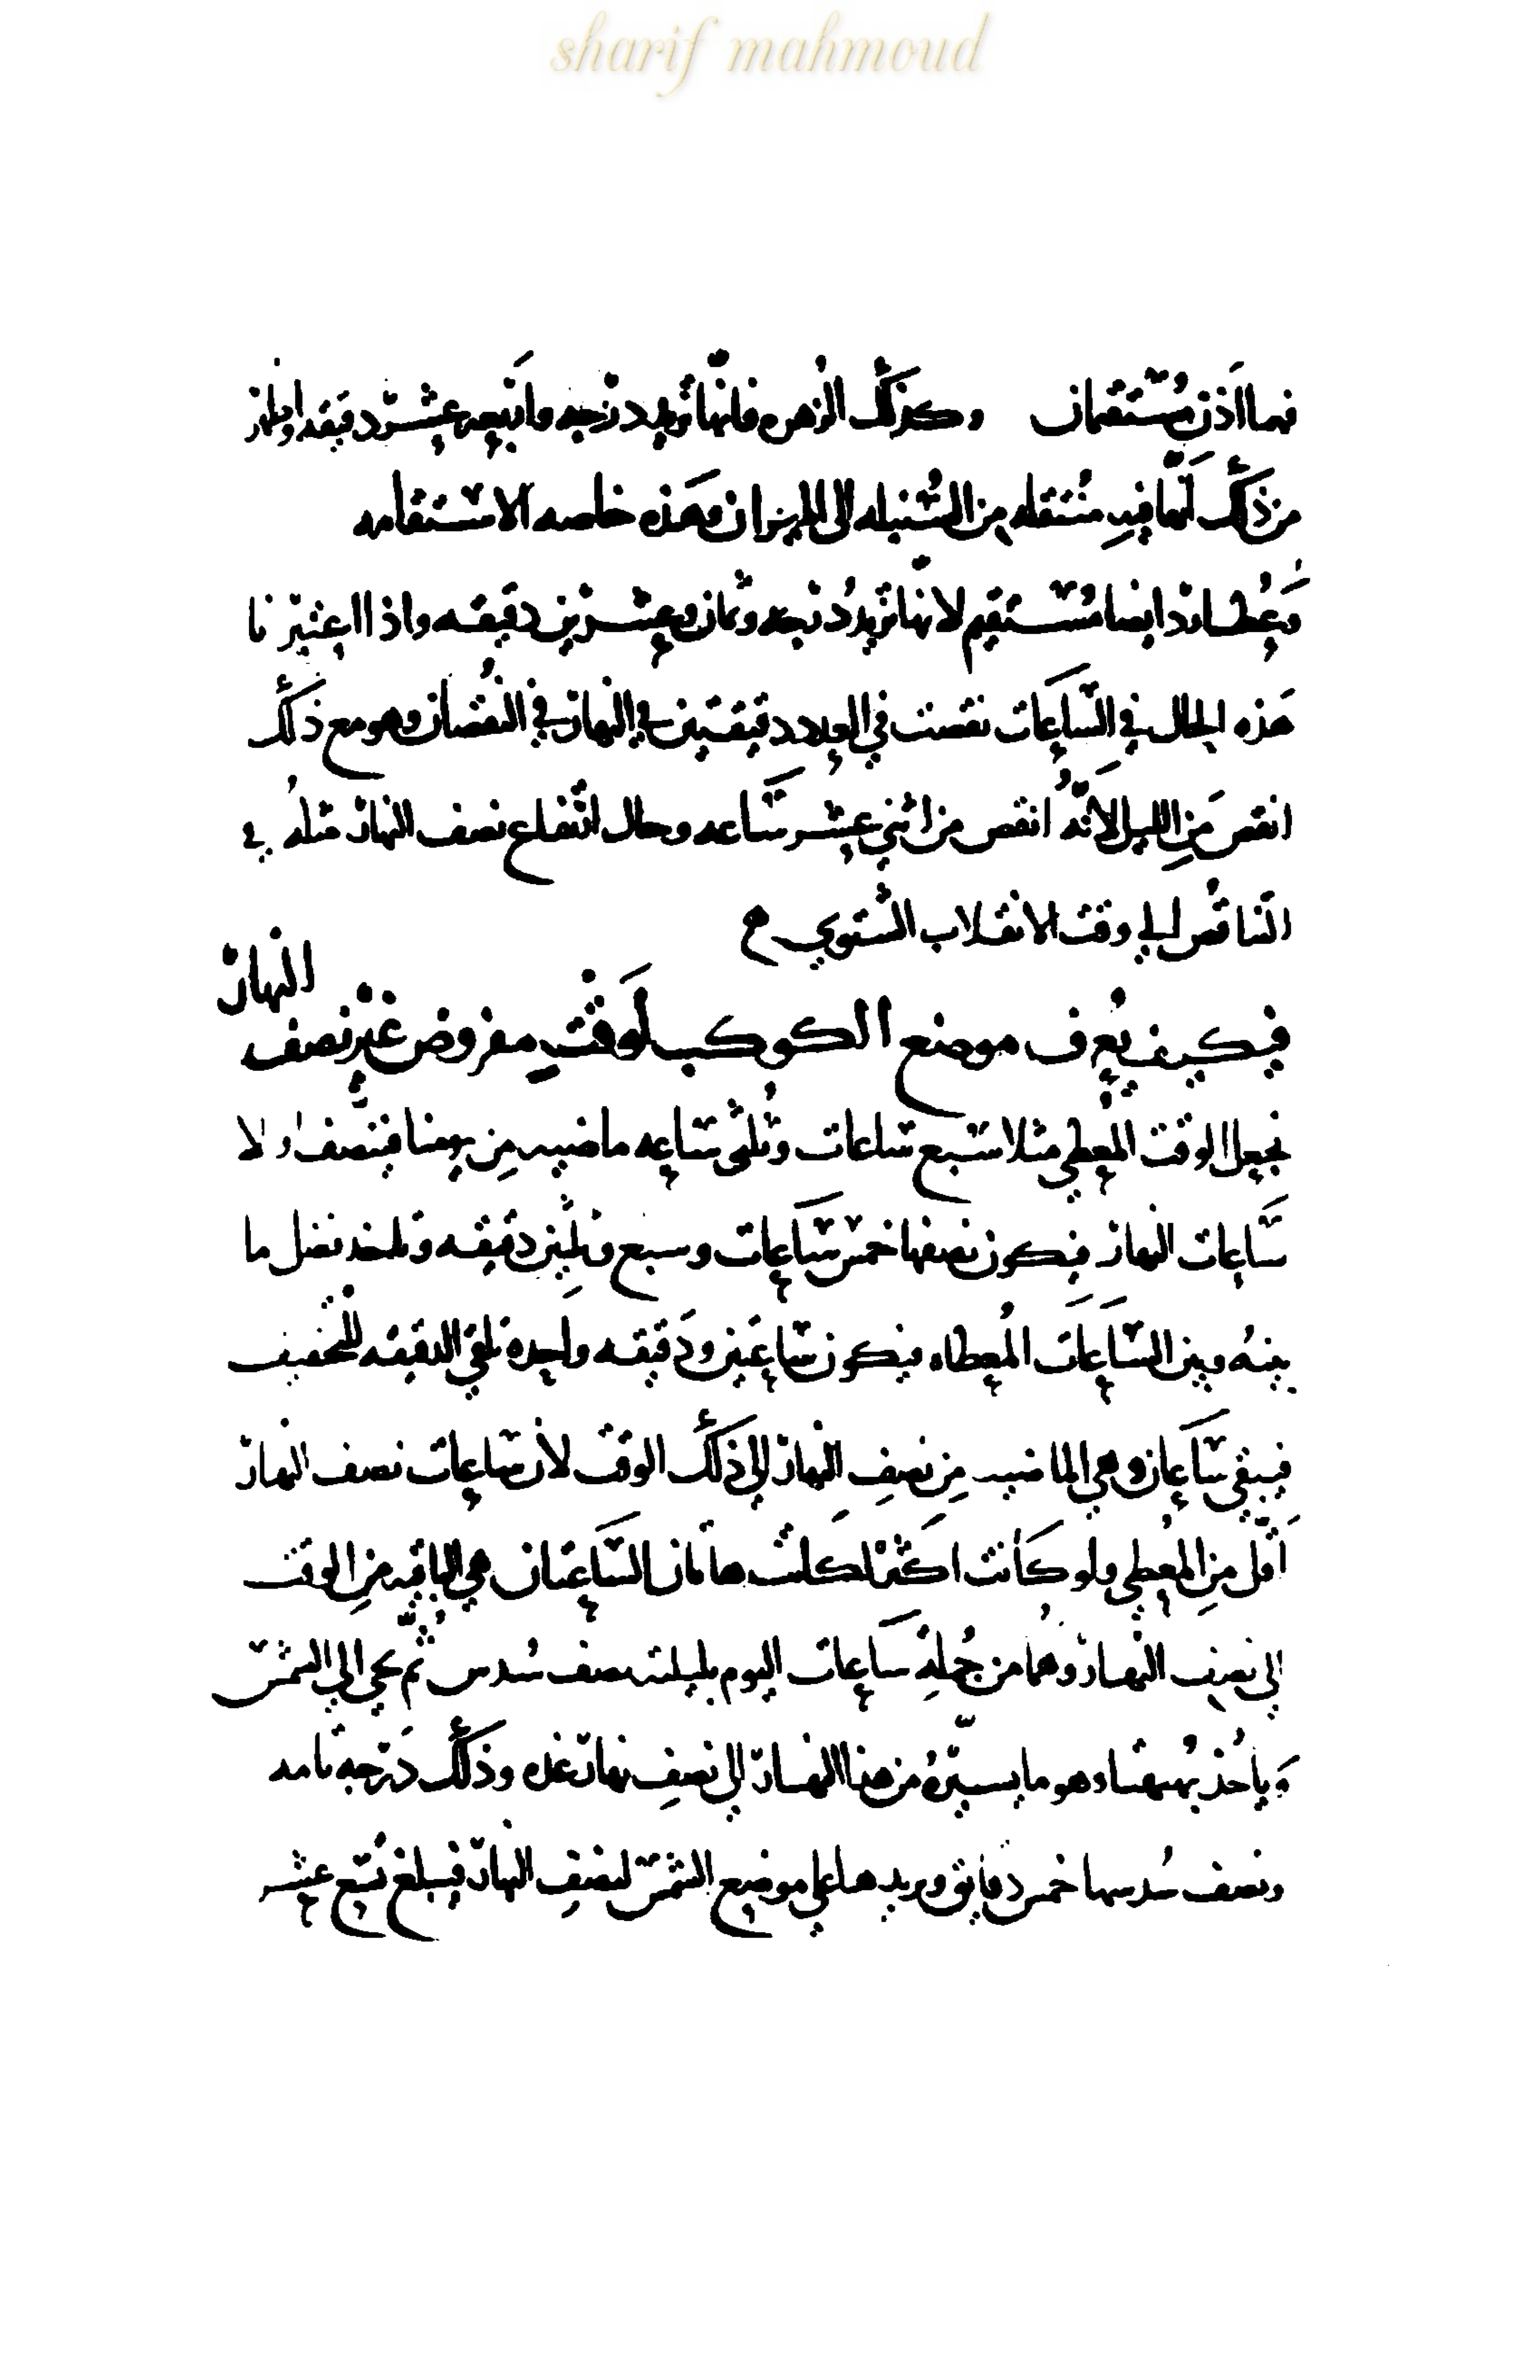 sharif mahmoud
فهما اذن مستقيمان وكذلك الزهره فانها تزيد درجه واربعه عشر دقيقه واظهر
من ذلك انها فيه منتقله من السنبله الى الميزان وهذه خاصه الاستقامه
وعطارد ايضا مستقيم لانها تزيد درجه وثمان وعشرين دقيقه واذا اعتبرنا
هذه الحال في الساعات نقصت في العدد دقيقتين في النهار في النقصان وهو مع ذلك
انقص من الليل لانه انقص من اثني عشر ساعه وحال ارتفاع نصف النهار مثله في
التناقص الي وقت الانقلاب الشتوي
النهار
في كيف يعرف موضع الكوكب لوقت مفروض غير نصف
نجعل الوقت المعطي مثلا سبع ساعات وثلثي ساعه ماضيه من يومنا فننصف اولا
ساعات النهار فيكون نصفها خمس ساعات وسبع وثلثين دقيقه وتاخذ فضل ما
بينه وبين الساعات المعطاه فيكون ساعتين ودقيقه واحدة تلقي الدقيقه للتخفيف
فيبقي ساعتان وهي الماضيه من نصف النهار الي ذلك الوقت لان ساعات نصف النهار
اقل من المعطي ولو كانت اكثر لكانت هاتان الساعتان هي الباقيه من الوقت
الي نصف النهار وهما من جملة ساعات اليوم بليلته نصف سدس ثم يجي الي الشمس
وياخذ بهتها وهو ما يسيره من هذا النهار الي نصف نهار غده وذلك درجة تامه
ونصف سدسها خمس دقايق ويزيدها علي موضع الشمس لنصف النهار فيبلغ تسع عشر